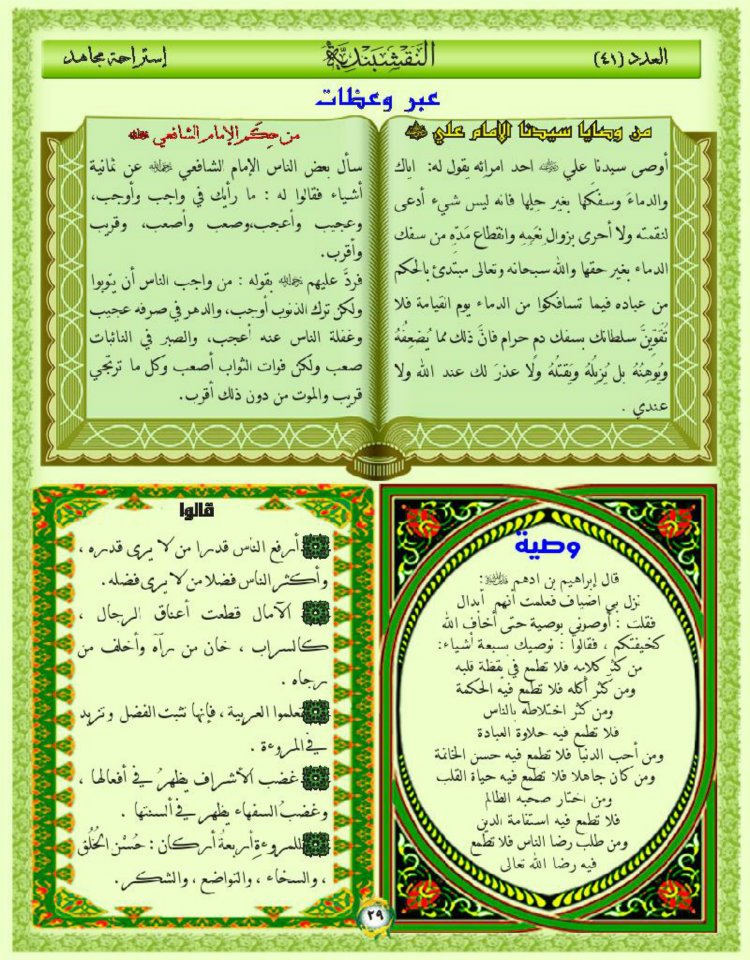 العدد (٤١)
النقشبندية
إستراحة مجاهد
عبر وعظات
من وصايا سيدنا الإمام علي
أوصى سيدنا علي احد امرائه بقول له: اياك
والدماءَ وسفكها بغير حِلِها فانه ليس شيء أدعى
لنقمته ولا أحرى بزوال نِعَمِهِ وانقطاع مَدِّه من سفك
الدماء بغير حقها والله سبحانه وتعالى مبتدئ بالحكم
من عباده فيما تسافكوا من الدماء يوم القيامة فلا
تُقَوِّيَنَّ سلطانك بسفك دم حرام فانَّ ذلك مما يُضعِفُهُ
ويُوهِنُهُ بل يُزيلُهُ ويَقتُلهُ ولا عذرَ لك عند الله ولا
عندي .
من حِكَم الإمام الشافعي
سأل بعض الناس الإمام الشافعي عن ثمانية
أشياء فقالوا له : ما رأيك في واجب وأوجب،
وعجيب وأعجب،وصعب وأصعب، وقريب
وأقرب.
فردَّ عليهم بقوله : من واجب الناس أن يتوبوا
ولكن ترك الذنوب أوجب، والدهر في صرفه عجيب
وغفلة الناس عنه أعجب، والصبر في النائبات
صعب ولكن فوات الثواب أصعب وكل ما ترتجي
قريب والموت من دون ذلك أقرب.
وصية
قال إبراهيم بن ادهم :
نزل بي اضياف فعلمت أنهم أبدال
فقلت : أوصوني بوصية حتى أخاف الله
كخيفتكم ، فقالوا : نوصيك بسبعة أشياء:
من كثر كلامه فلا تطمع في يقظة قلبه
ومن كثر أكله فلا تطمع فيه الحكمة
ومن كثر اختلاطه بالناس
فلا تطمع فيه حلاوة العبادة
ومن أحب الدنيا فلا تطمع فيه حسن الخاتمة
ومن كان جاهلا فلا تطمع فيه حياة القلب
ومن اختار صحبة الظالم
فلا تطمع فيه استقامة الدين
ومن طلب رضا الناس فلا تطمع
فيه رضا الله تعالى
قالوا
أرفع الناس قدرا من لا يرى قدره ،
وأكثر الناس فضلا من لا يرى فضله .
الآمال قطعت أعناق الرجال ،
كالسراب ، خان من رآه وأخلف من
رجاه .
تعلموا العربية ، فإنها تثبت الفضل وتزيد
في المروءة .
غضب الأشراف يظهرُ في أفعالها ،
وغضبُ السفهاء يظهر في ألسنتها .
للمروءةِ أربعةُ أركان : حُسْن الخُلُق
، والسخاء ، والتواضع ، والشكر .
٢٩